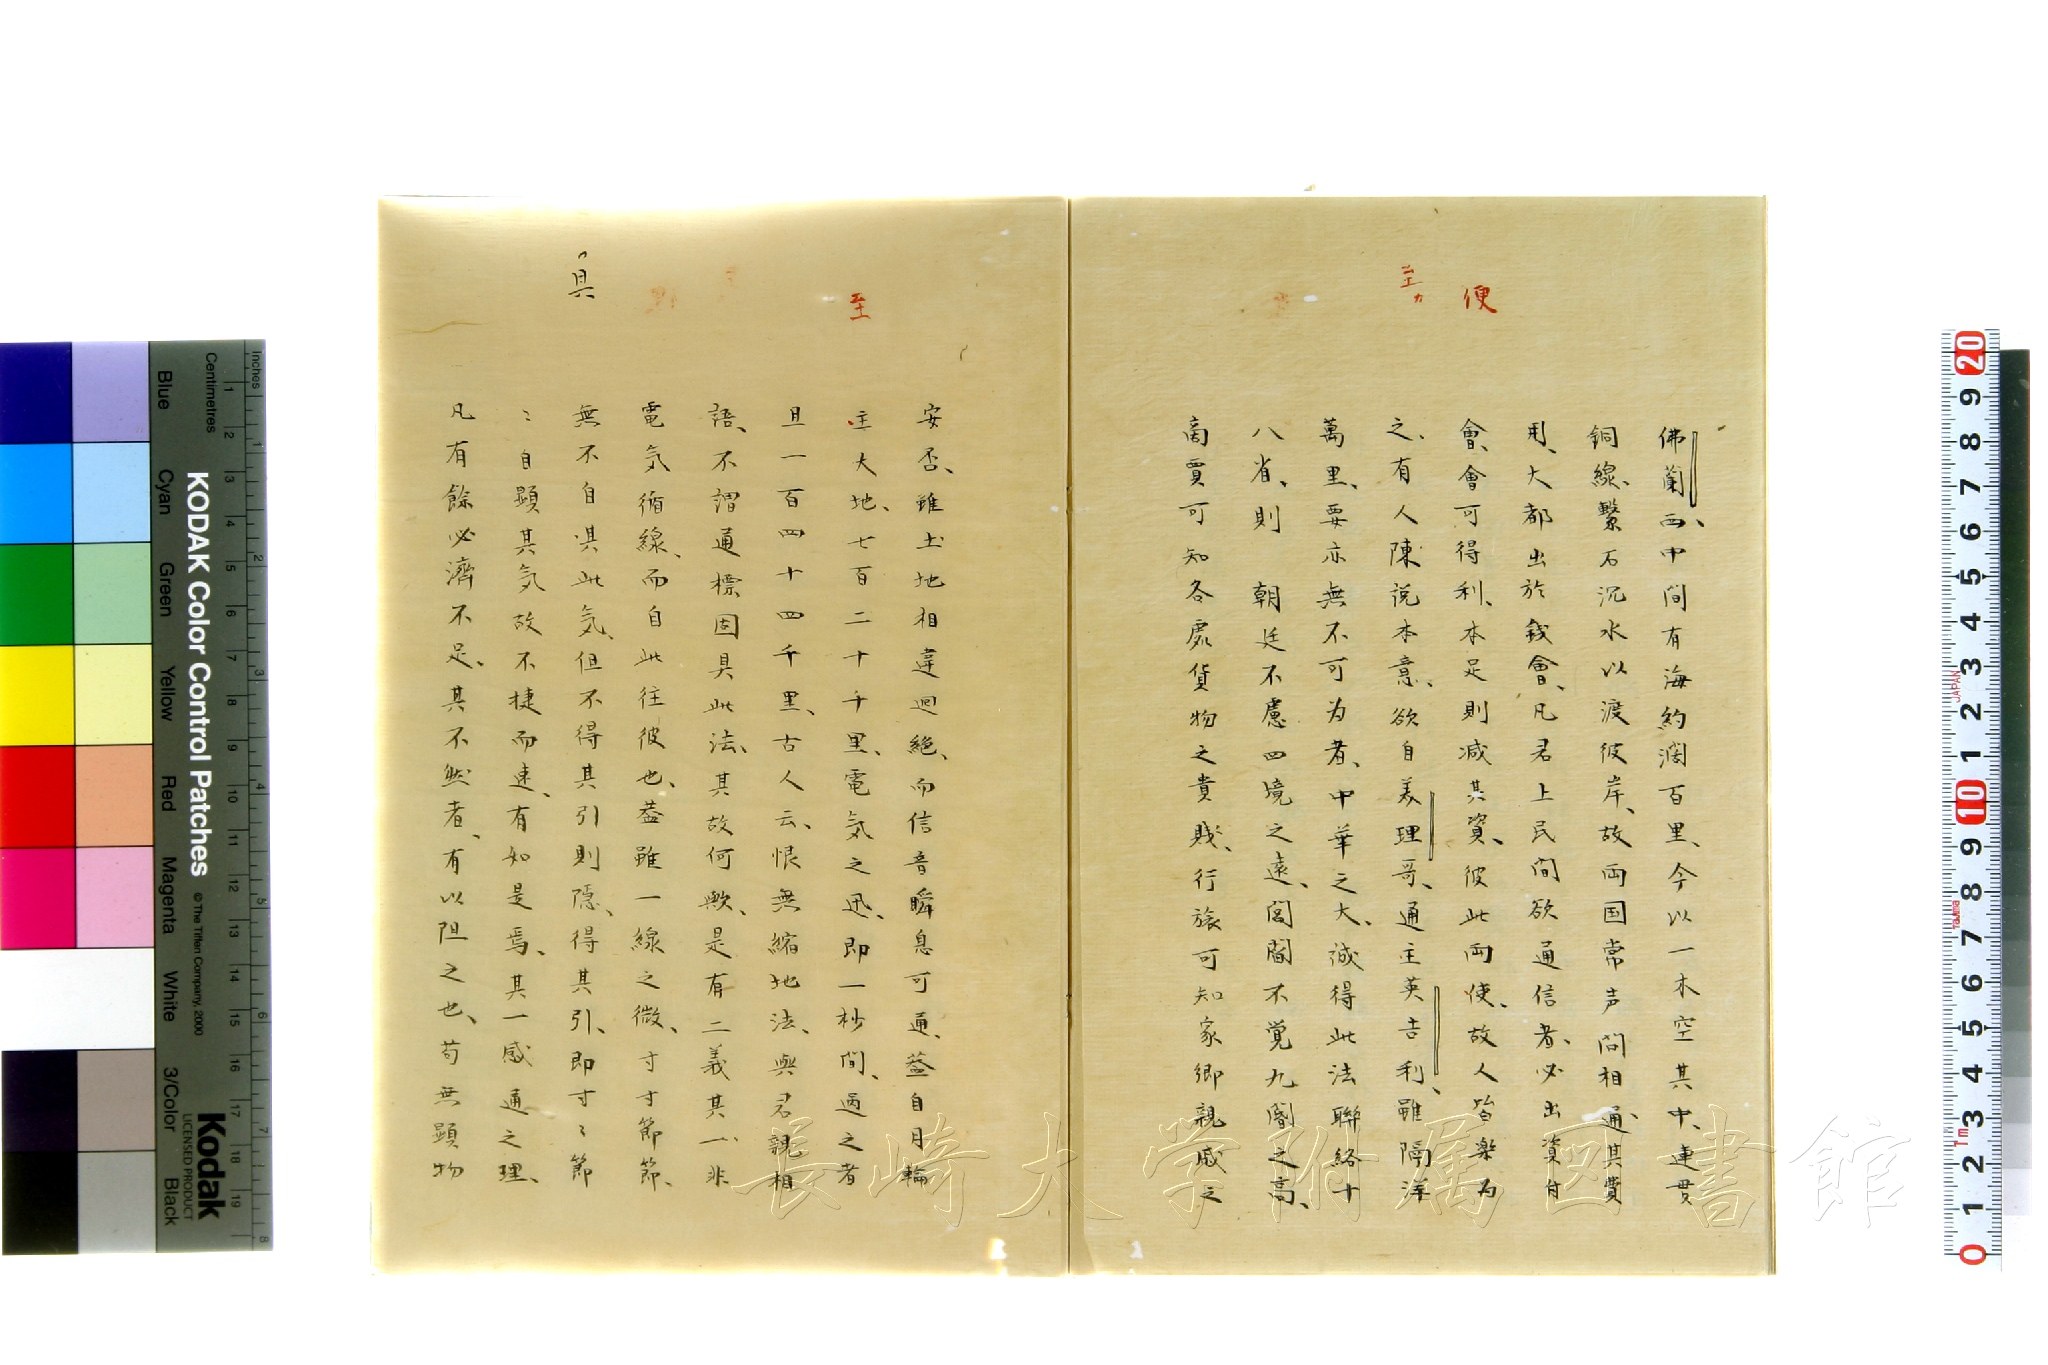 便
至カ
佛蘭西、中间有海約濶百里、今以一木空其中、連貫
銅線、繫石沉水以渡彼岸、故両国常声问相通、其費
用、大都出於錢會、凡君上民间欲通信者、必出資付
會、會可得利、本足則减其資、彼此両使、故人皆楽为
之、有人陳说本意、欲自美理哥、通主英吉利、雖隔洋
萬里、要亦無不可为者、中華之大、诚得此法聯络十
八省、則　朝廷不慮四境之遠、闾閻不覚九閽之高、
商賈可知各處貨物之貴賤、行旅可知家鄉親戚之
至
具
安否、雖土地相違迥絶、而信音瞬息可通、蓋自月輪
主大地、七百二十千里、電気之迅、即一杪间、過之者
且一百四十四千里、古人云、恨無縮地法、與君親相
語、不謂通標固具此法、其故何歟、是有二義其一、非
電気循線、而自此往彼也、蓋雖一線之微、寸寸節節、
無不自具此気、但不得其引則隱、得其引、即寸〻節
〻自顕其気故不捷而速、有如是焉、其一感通之理、
凡有餘必濟不足、其不然者、有以阻之也、苟無顕物
長崎大学附属図書館
KODAK Color Control Patches
© The Tiffen Company, 2000
Kodak
LICENSED PRODUCT
Inches
Centimetres
Blue
Cyan
Green
Yellow
Red
Magenta
White
3/Color
Black
1 2 3 4 5 6 7 8 9 10 11 12 13 14 15 16 17 18 19
1 2 3 4 5 6 7 8
20 9 8 7 6 5 4 3 2 1 10 9 8 7 6 5 4 3 2 1 0
JAPAN
1m